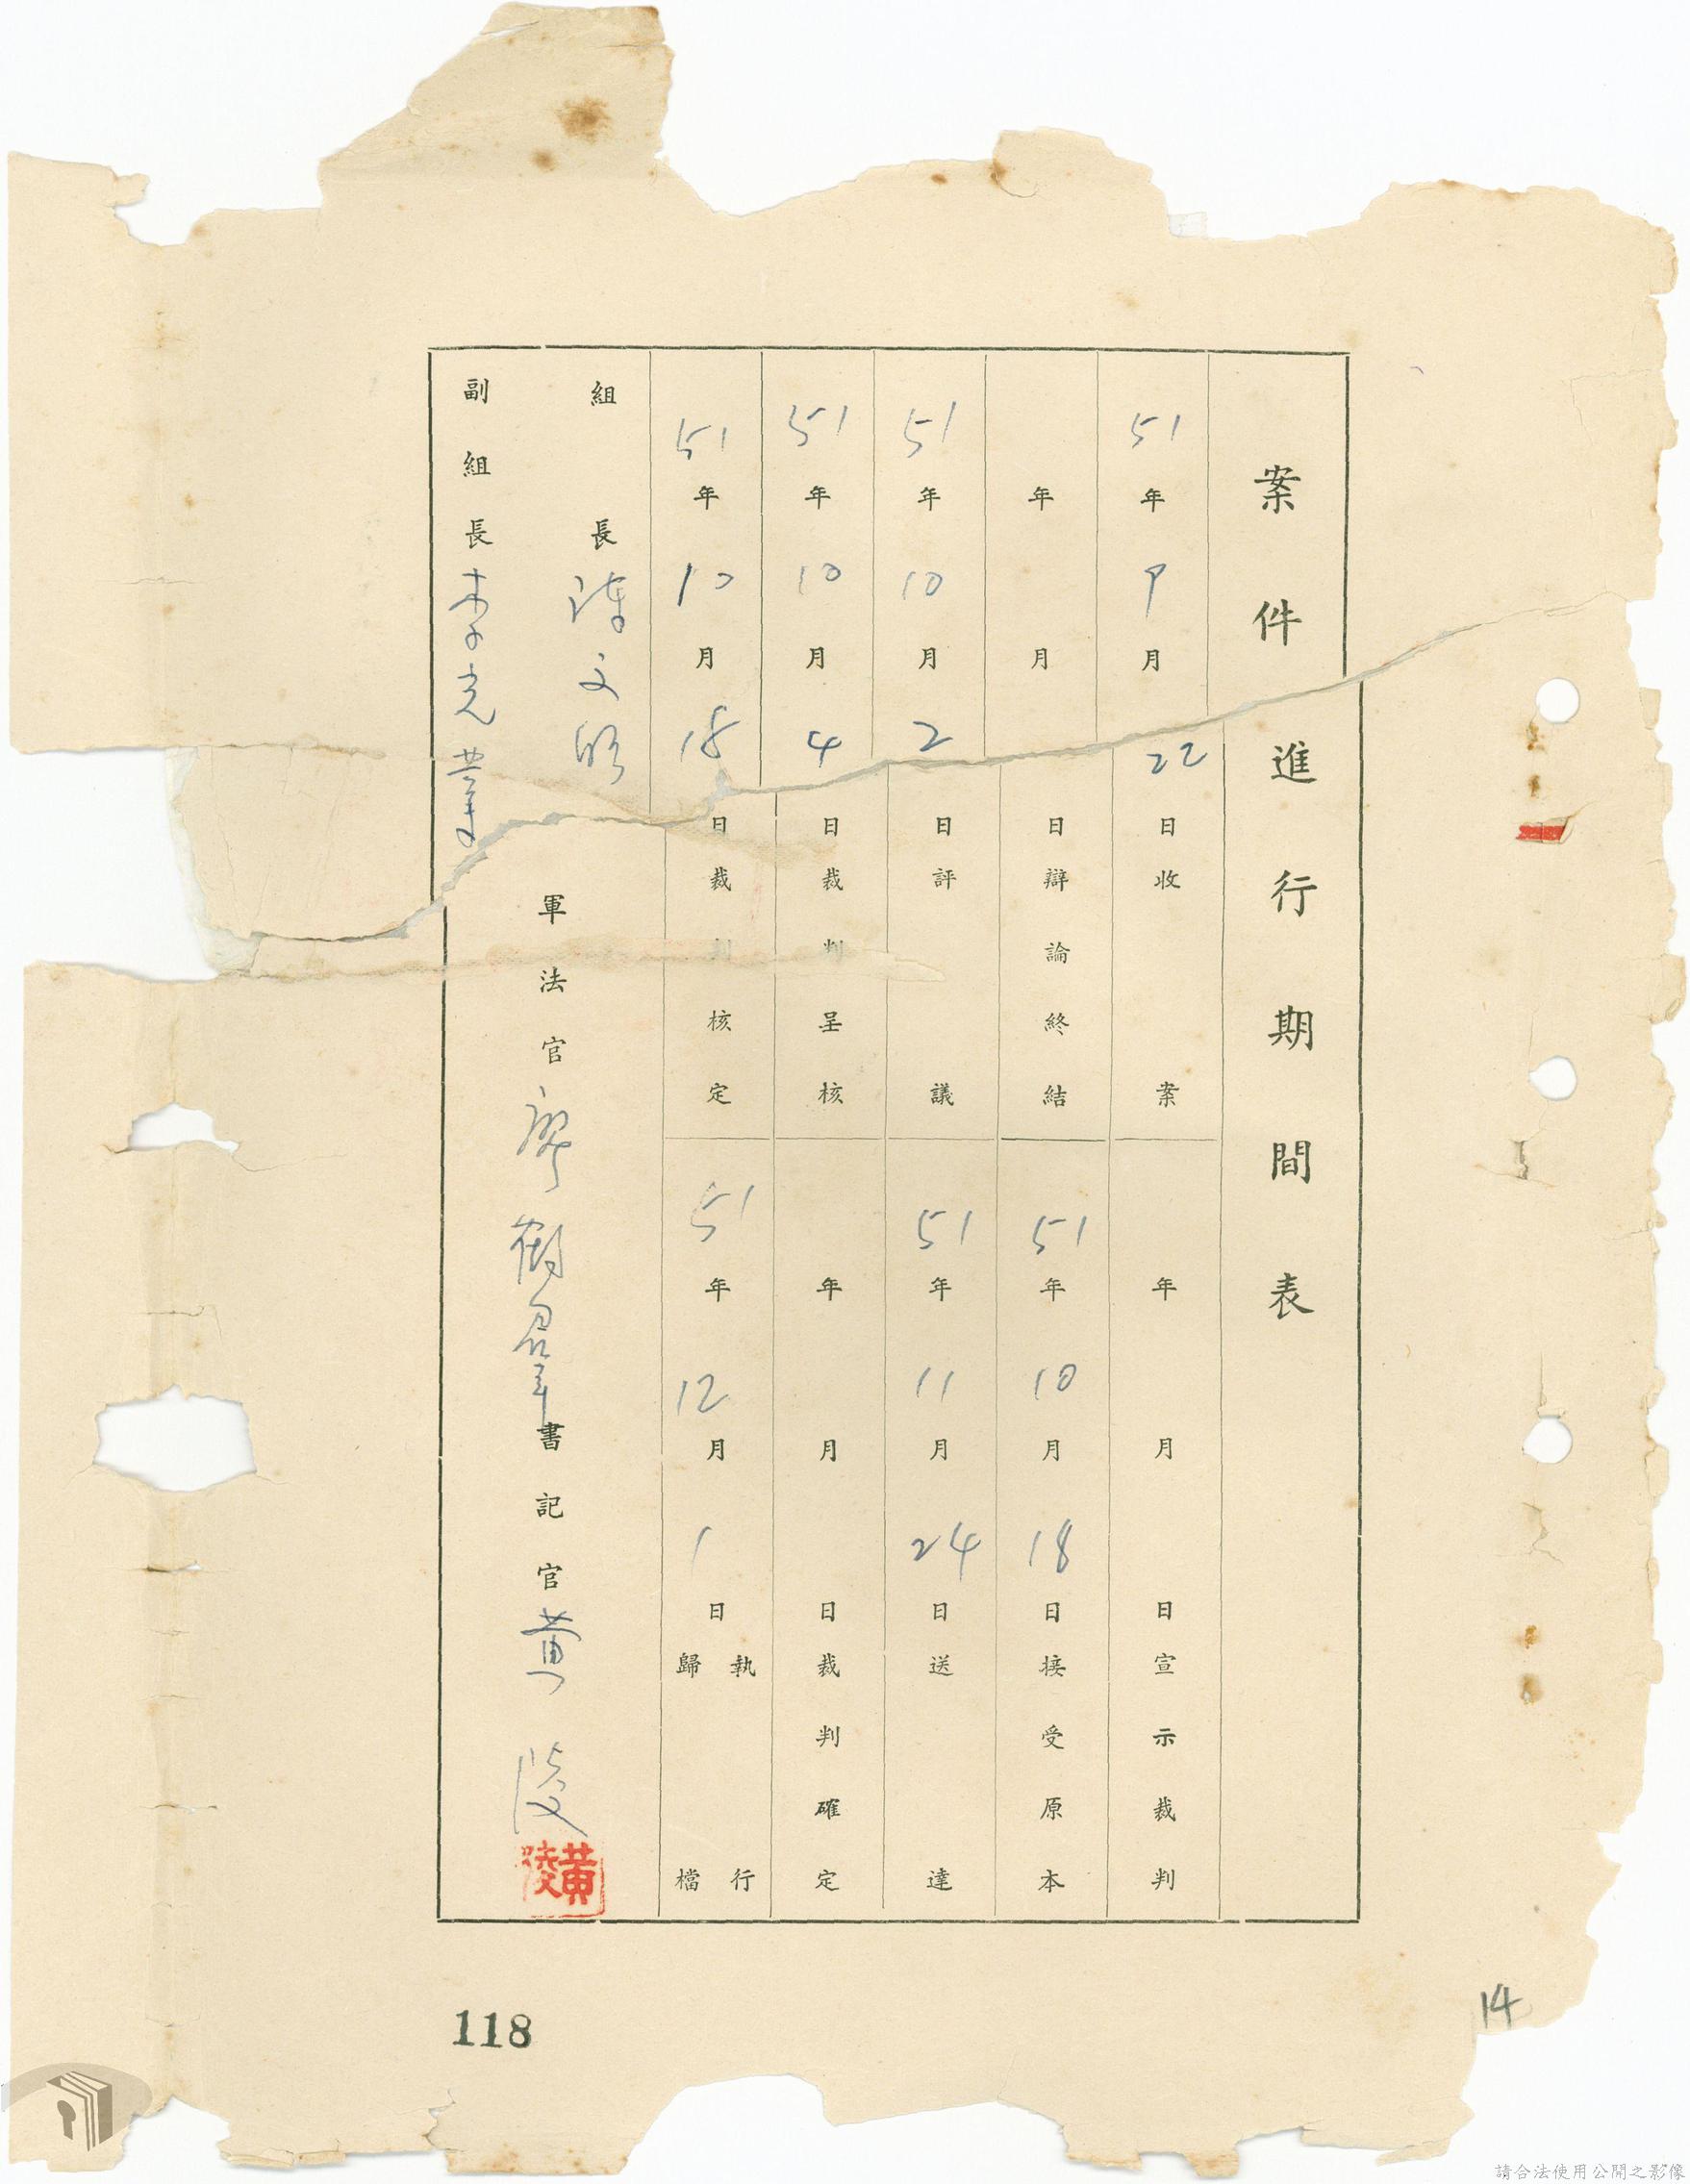 案件進行期間表
51年9月22日收案
年月日宣示裁判
年月日辯論終結
51年10月18日接受原本
51年10月2日評議
51年11月24日送達
51年10月4日裁判呈核
年月日裁判確定
51年10月18日裁判核定
51年12月1日執行歸檔
組長陳文
軍法官廖鶴
書記官黃陵
黃陵
副組長李光業
118
14
請合法使用公開之影像